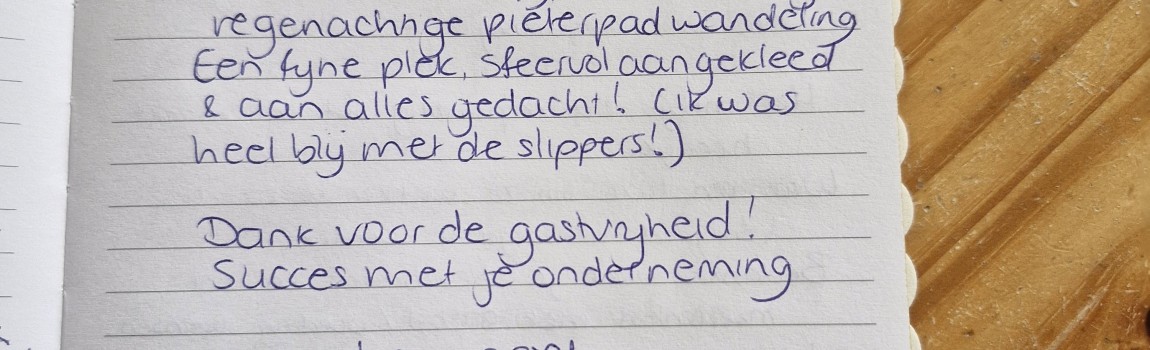 regenachtige pieterpad wandeling
Een fijne plek, sfeervol aangekleed
& aan alles gedacht! (ik was
heel blij met de slippers!)
Dank voor de gastvrijheid!
Succes met je onderneming